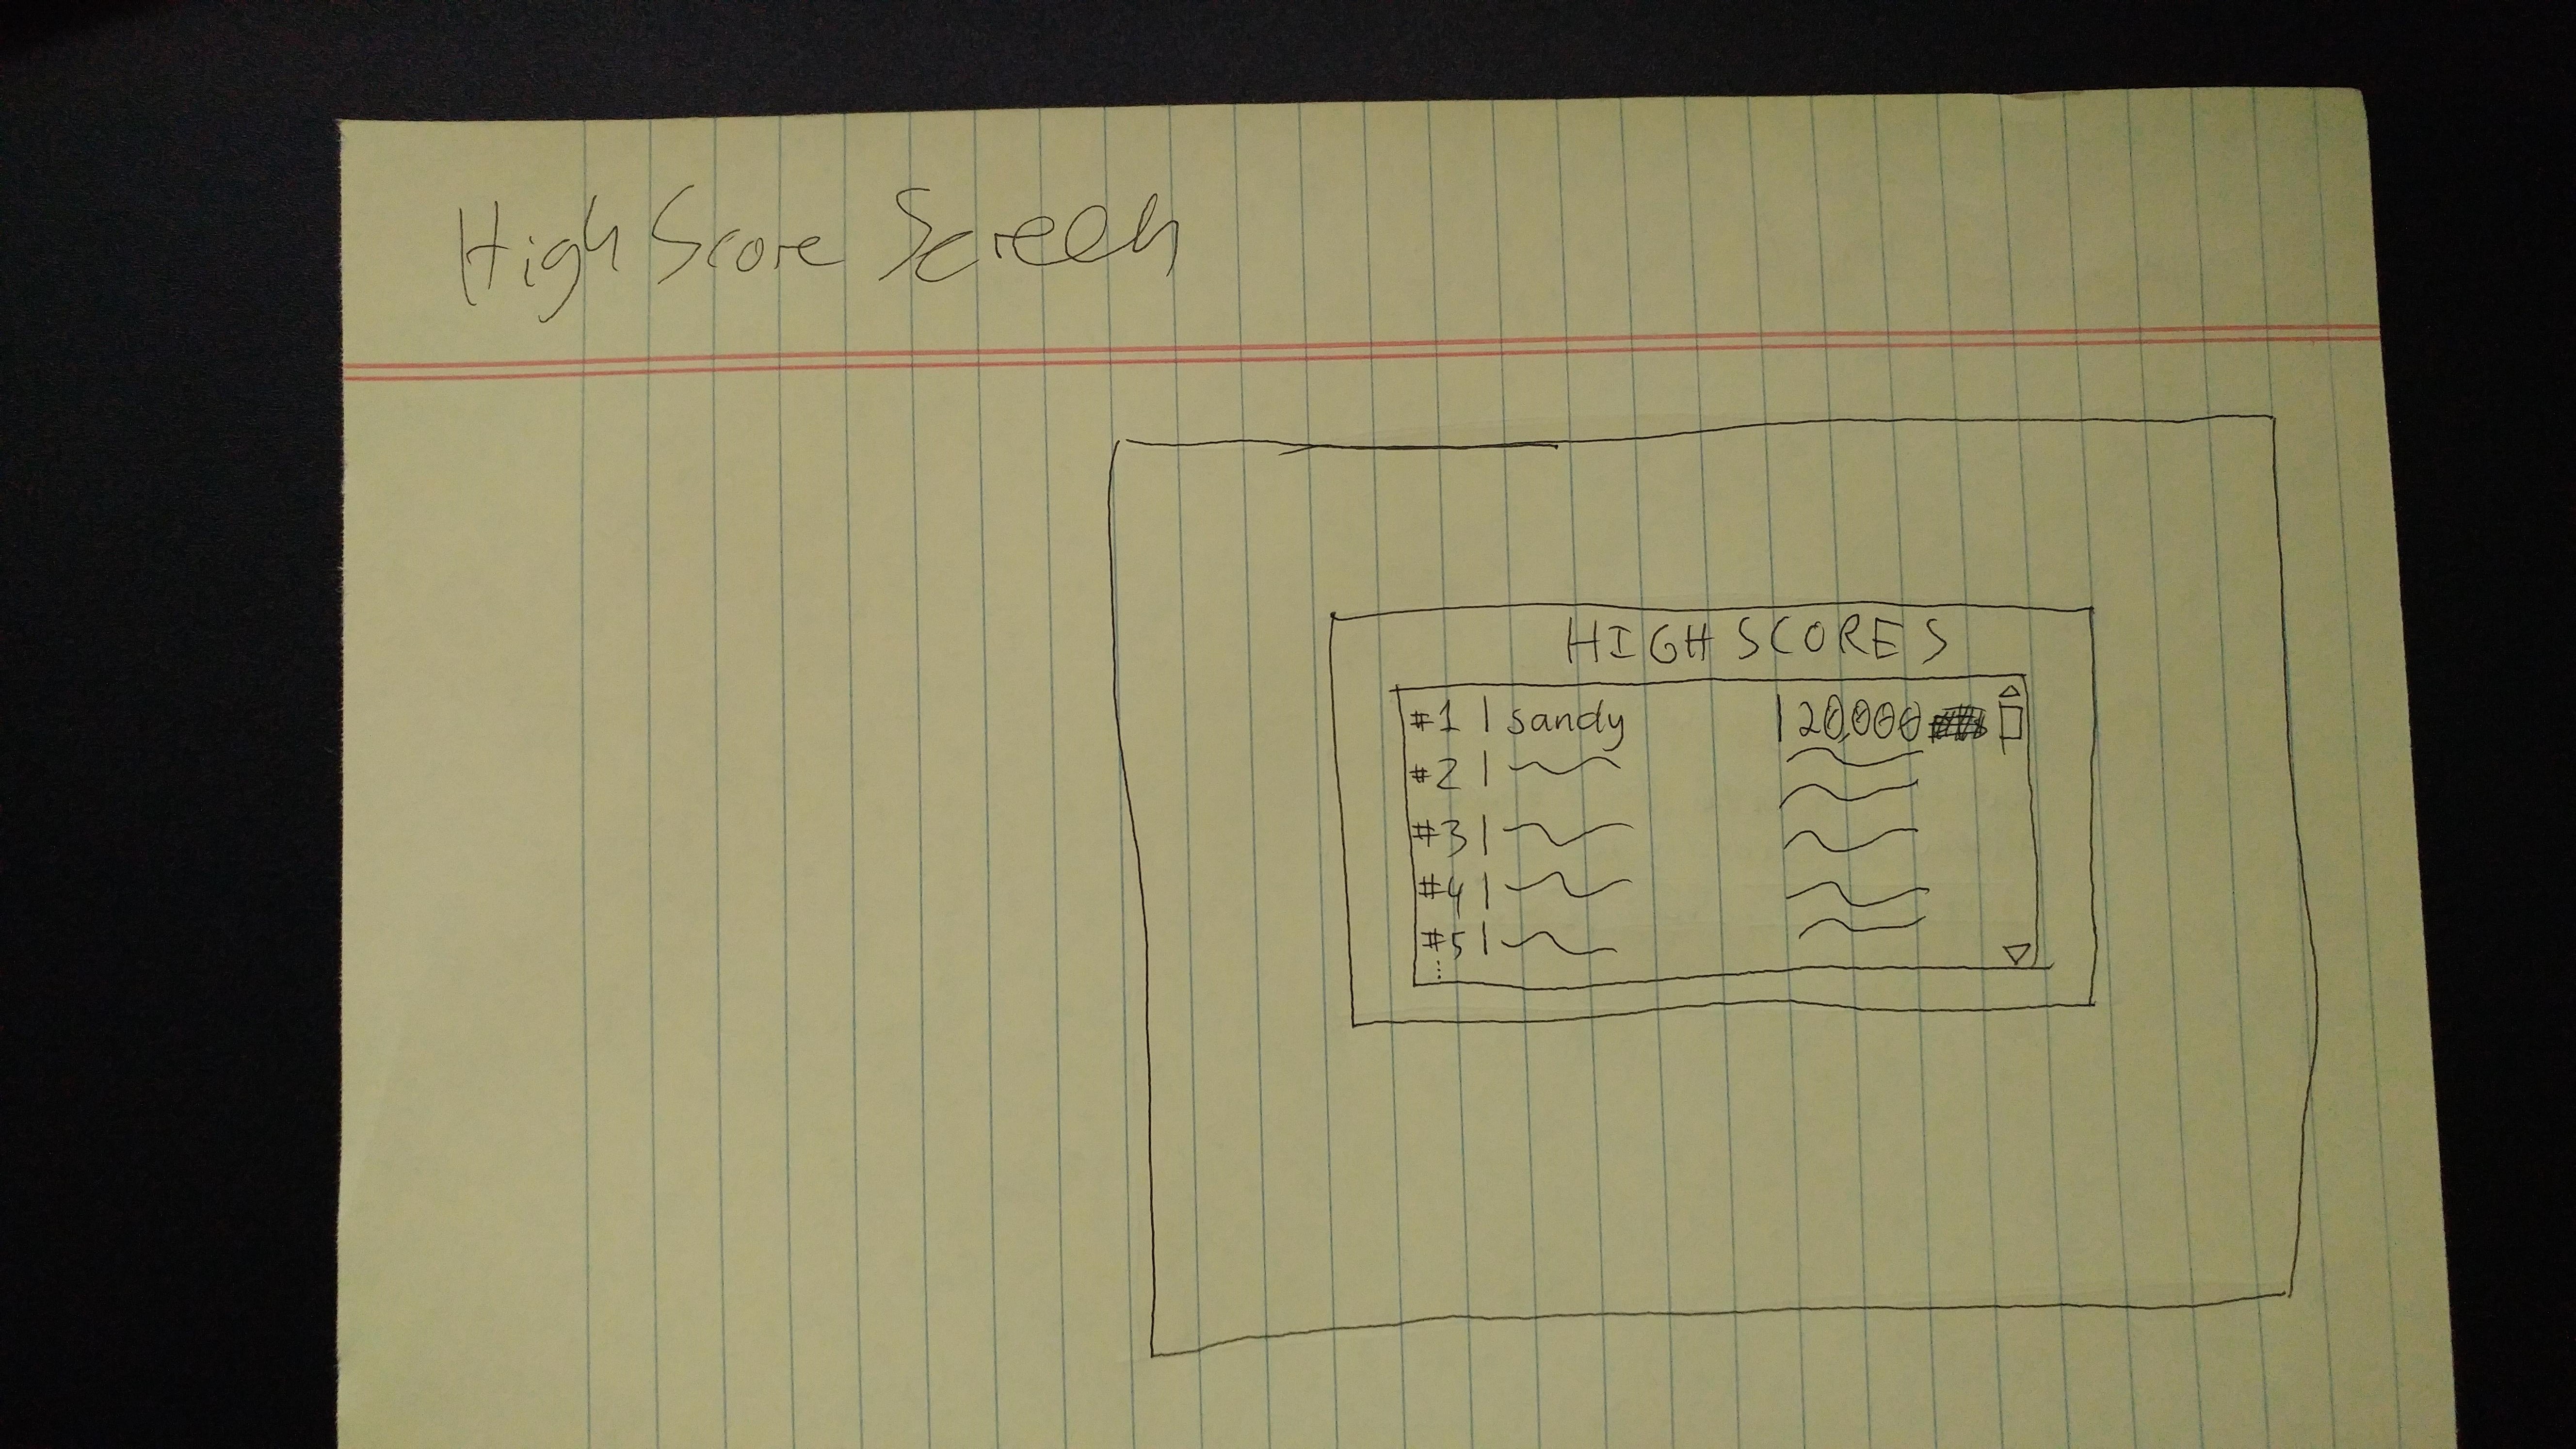 High Score Screen
HIGH SCORES
#1 | sandy | 20,000
#2 |
#3 |
#4 |
#5 |
...